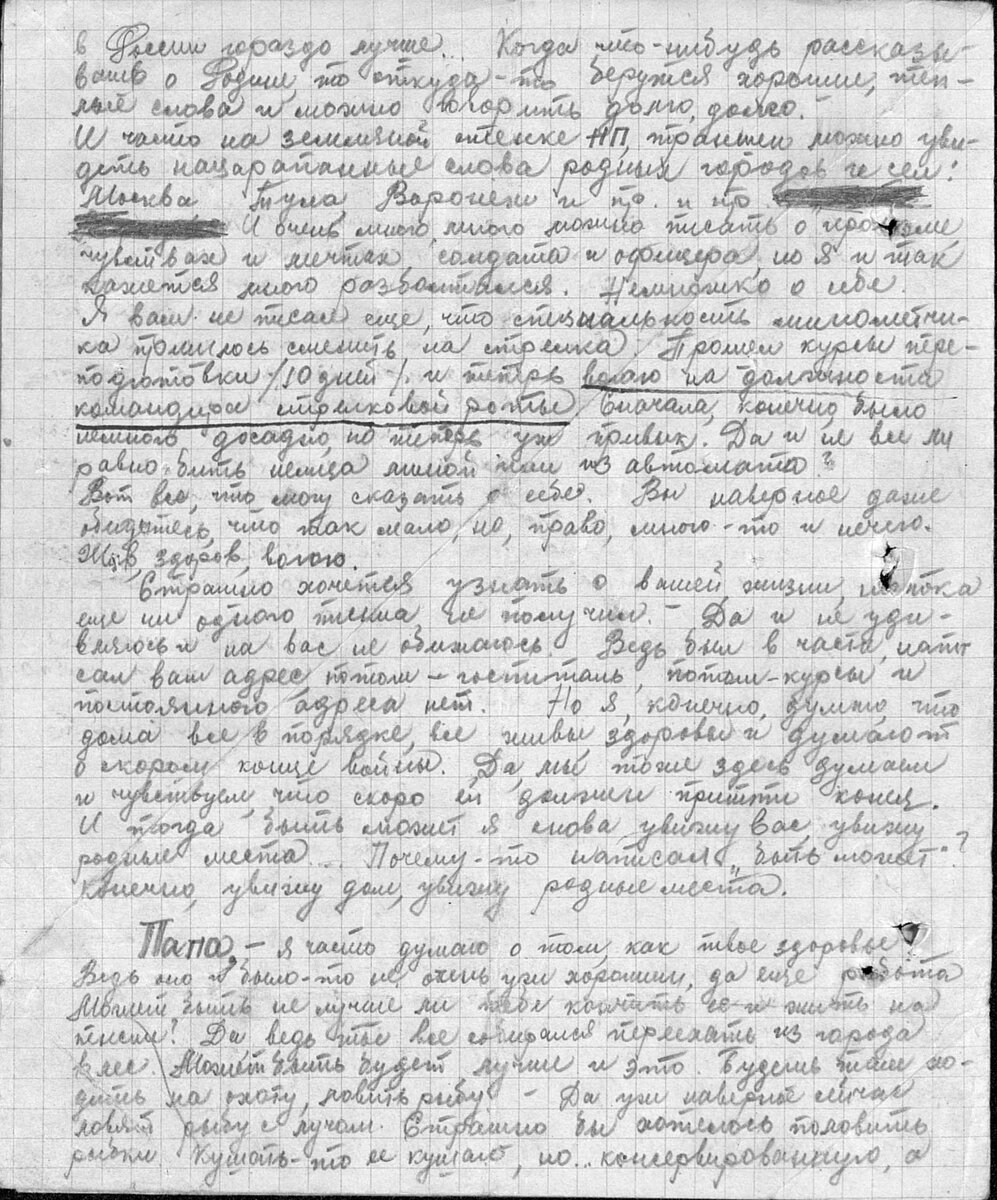 в России гораздо лучше... Когда что-нибудь рассказы-
ваешь о Родине, то откуда-то берутся хорошие, теп-
лые слова и можно говорить долго, долго.
И часто на земляной стенке НП, траншеи можно уви-
деть нацарапанные слова родных городов и сел:
Москва Тула Воронеж и пр. и пр.
И очень много, много можно писать о
чувствах и мечтах солдата и офицера, но я и так
кажется много разболтался. Немножко о себе.
Я вам не писал еще, что специальность минометчи-
ка пришлось сменить на стрелка. Прошел курсы пере-
подготовки /10 дней/ и теперь воюю на должности
командира стрелковой роты. Сначала, конечно, было
немного досадно, но теперь уж привык. Да и не все ли
равно бить немца миной или из автомата?
Вот все, что могу сказать о себе. Вы наверное даже
обидетесь, что так мало, но, право, много-то и нечего.
Жив, здоров, воюю.
Страшно хочется узнать о вашей жизни, но пока
еще ни одного письма не получил. – Да и не уди-
вляюсь и на вас не обижаюсь. Ведь был в части, напи
сал ваш адрес потом – госпиталь, потом – курсы и
постоянного адреса нет. Но я, конечно, думаю, что
дома все в порядке, все живы здоровы и думают
о скором конце войны. Да, мы тоже здесь думаем
и чувствуем, что скоро ей должен притти конец.
И тогда быть может я снова увижу вас, увижу
родные места... Почему-то написал „быть может"?
Конечно, увижу дом, увижу родные места.
Папа, – я часто думаю о том, как твое здоровье?
Ведь оно и было-то не очень уж хорошим, да еще работа
Может быть не лучше ли тебе кончить ее и жить на
пенсии? Да ведь ты все собирался переехать из города
в лес. Может быть будет лучше и это. Будешь там хо-
дить на охоту, ловить рыбу – Да уж наверное сейчас
ловят рыбу с лучом. Страшно бы хотелось половить
рыбки. Кушать-то ее кушаю, но... консервированную, а